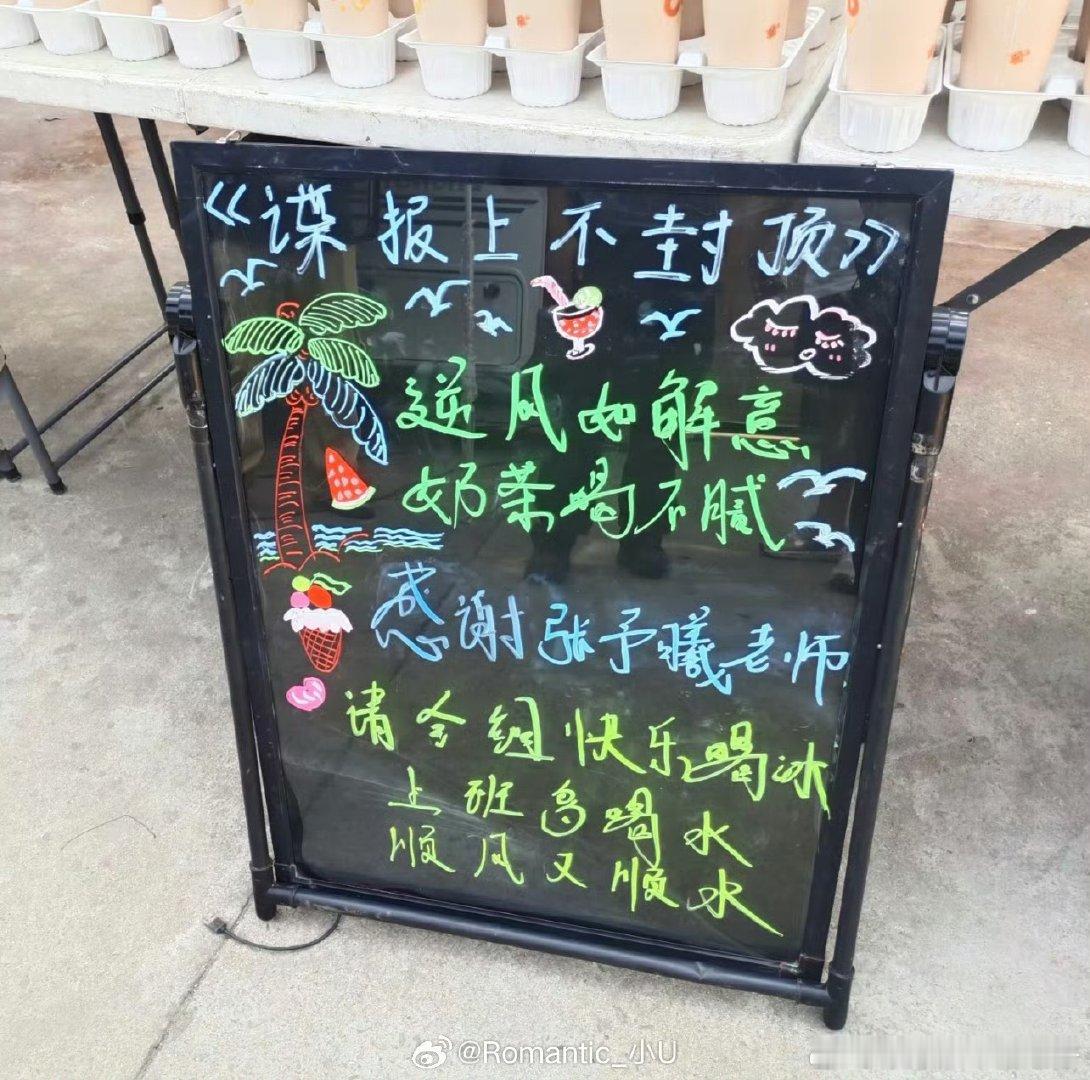 《谍报上不封顶》
逆风如解意
奶茶喝不腻
感谢张予曦老师
请全组快乐喝冰
上班多喝水
顺风又顺水
@Romantic_小U